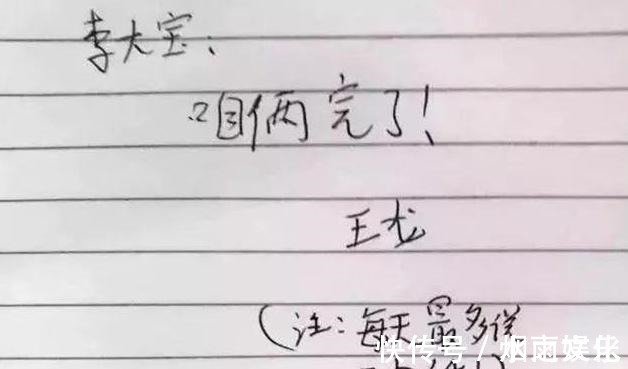 李大宝:
咱俩完了!
王龙
(注:每天最多送
快传号 / 烟雨娱乐